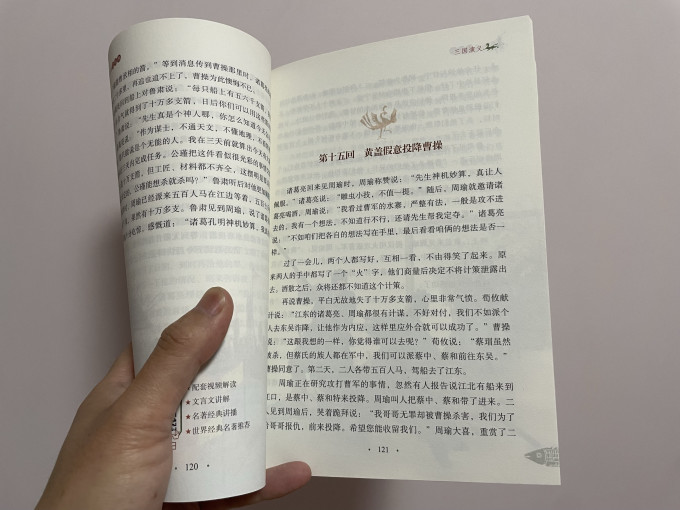 敌射的箭。”等到消息传到曹操那里时，诸葛
，再追也追不上了，曹操为此懊悔不已。
船上对鲁肃说：“每只船上有五六千支箭，
气就得到了十万多支箭，日后你们可以用这些
说：“先生真是个神人哪，你怎么知道今天
：“作为谋士，不通天文，不懂地理，不
是个无能的人。我在三天前就算出今天
天内完成任务。公瑾把这件看似很光彩的
但工匠、材料都不齐全，这摆明
公瑾能想杀就杀吗？”鲁肃听后对他
周瑜已派来五百人马在江边等着，五
果然有十万多支。鲁肃见到周瑜，说了
感慨道：“诸葛孔明神机妙算，我
配套视频解读
★文言文讲解
★名著经典讲播
★世界经典名著推荐
• 120 •
三国演义
第十五回 黄盖假意投降曹操
诸葛亮回来见周瑜时，周瑜称赞说：“先生神机妙算，真让人
佩服。”诸葛亮说：“雕虫小技，不值一提。”随后，周瑜就邀请诸
葛亮喝酒，周瑜说：“我看过曹军的水寨，严整有法，一般是攻不进
去的，我有一个想法，不知道行不行，还请先生帮我定夺。”诸葛亮
说：“不如咱们把各自的想法写在手里，最后看看咱俩的想法是否一
样。”
过了一会儿，两个人都写好，互相一看，不由得笑了起来。原
来两人的手中都写了一个“火”字，他们商量后决定不将计策泄露出
去。酒散之后，众将还都不知道这个计策。
再说曹操，平白无故地失了十万多支箭，心里非常气愤。荀攸献
计说：“江东的诸葛亮、周瑜都很有计谋，不好对付，我们不如派个
人去东吴诈降，让他作为内应，这样里应外合就可以成功了。”曹操
说：“这跟我想的一样，你觉得谁可以去呢？”荀攸说：“蔡瑁虽然
被杀，但蔡氏的族人都在军中，我们可以派蔡中、蔡和前往东吴。”
曹操同意了。第二天，二人各带五百人马，驾船去了江东。
周瑜正在研究攻打曹军的事情，忽然有人报告说江北有船来到
江口，是蔡中、蔡和特来投降。周瑜叫人把蔡中、蔡和带了进来。二
人见到周瑜后，哭着跪拜说：“我哥哥无罪却被曹操杀害，我们为了
给哥哥报仇，前来投降。希望您能收留我们。”周瑜大喜，重赏了二
• 121 •